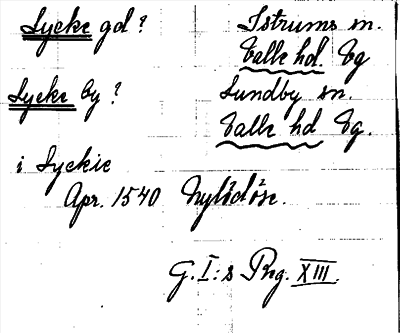 Lycke gd? Istrums sn.
Valle hd. Vg
Lycke by? Sundby sn.
Valle hd Vg.
i Lyckie
Apr. 1540 Nylödöse.
G.I:s Reg. XIII.